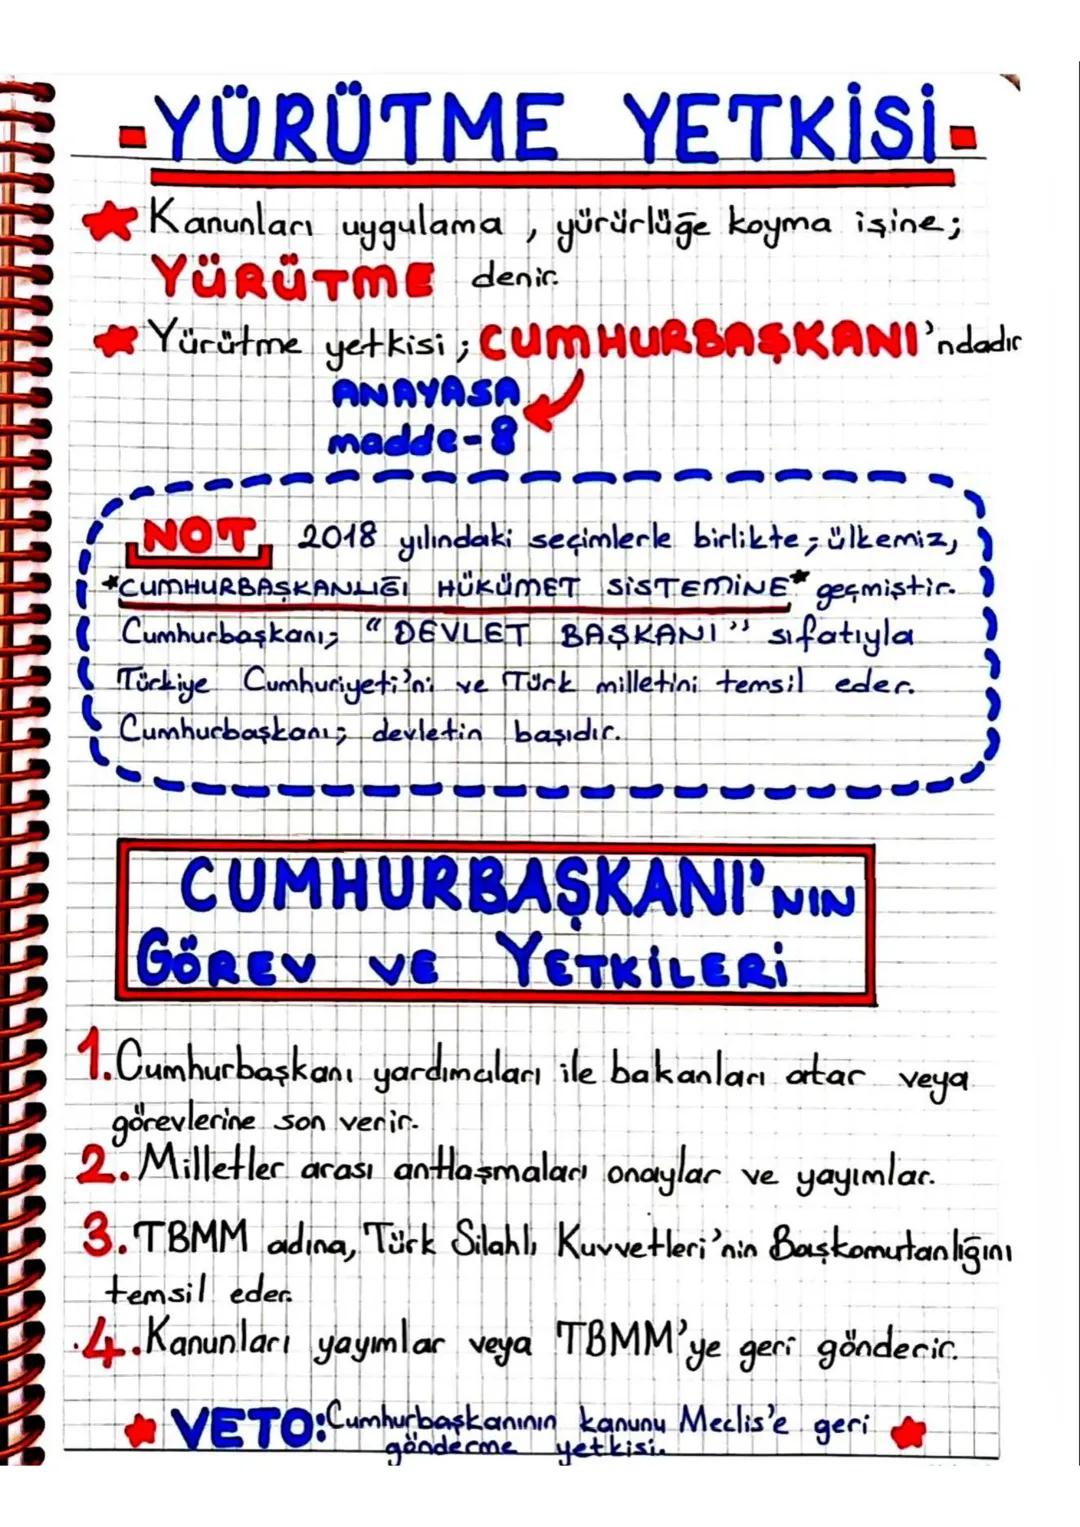 -YÜRÜTME YETKİSİ-
Kanunları uygulama, yürürlüğe koyma işine;
YÜRÜTME denir.
Yürütme yetkisi; CUMHURBAŞKANI'ndadır
ANAYASA
madde-8
NOT 2018 yılındaki seçimlerle birlikte; ülkemiz,
*CUMHURBAŞKANLIĞI HÜKÜMET SİSTEMİNE* geçmiştir.
Cumhurbaşkanı; "DEVLET BAŞKANI" sıfatıyla
Türkiye Cumhuriyeti'ni ve Türk milletini temsil eder.
Cumhurbaşkanı; devletin başıdır.
CUMHURBAŞKANI'NIN
GÖREV VE YETKİLERİ
1. Cumhurbaşkanı yardımcıları ile bakanları atar veya
görevlerine son verir.
2. Milletler arası antlaşmaları onaylar ve yayımlar.
3. TBMM adına, Türk Silahlı Kuvvetleri'nin Başkomutanlığını
temsil eder.
4. Kanunları yayımlar veya TBMM'ye geri gönderir.
VETO: Cumhurbaşkanının kanunu Meclis'e geri
gönderme yetkisi.